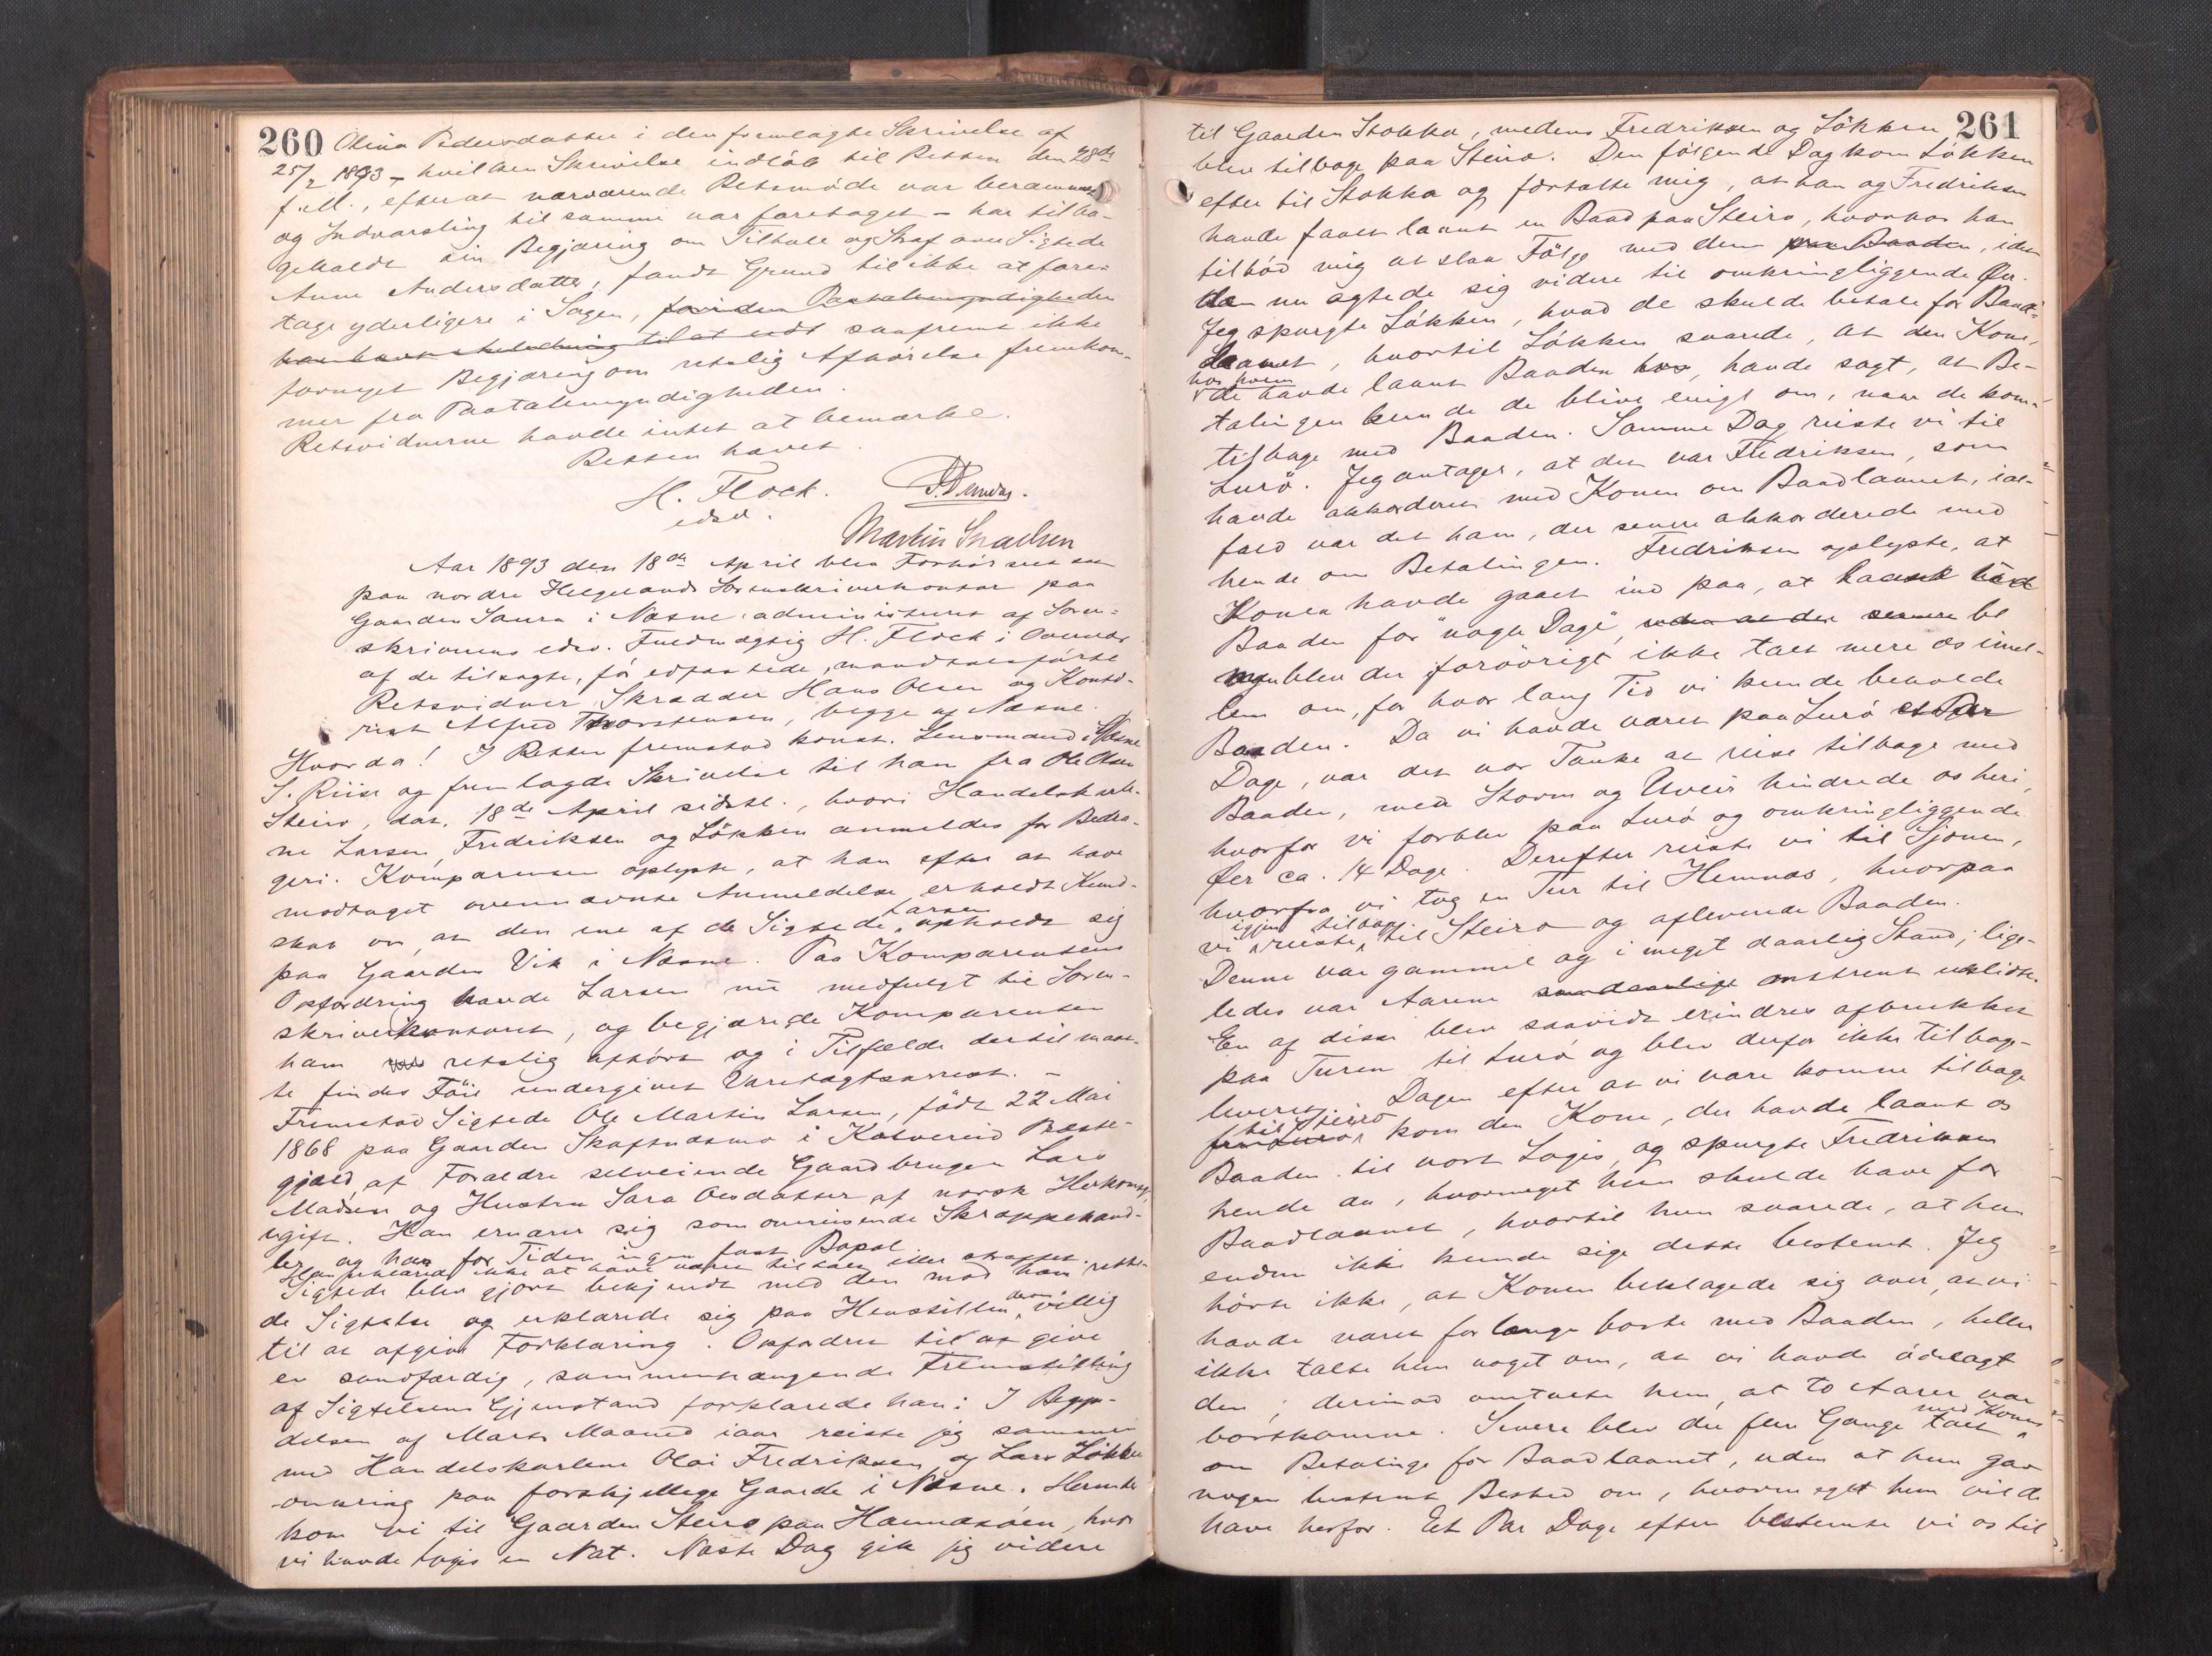 260
Olina Pedersdatter i den fremlagte Skrivelse af
25/2 1893 – hvilken Skrivelse indløb til Retten den 28de
f. M., efterat nærværende Retsmøde var berammet
og Indvarsling til samme var foretaget – har tilba-
gekaldt sin Begjæring om Tiltale og Straf over Sigtede
Anne Andersdatter, fandt Grund til ikke at fore-
tage yderligere i Sagen, førinden Paatalemyndigheden
har havt Anledning til at udt saafremt ikke
fornyet Begjæring om retslig Afhørelse fremkom-
mer fra Paatalemyndigheden.
Retsvidnerne havde intet at bemærke.
Retten hævet.
H. Flock.
edsv.
Martin Israelsen
Aar 1893 den 18de April blev Forhørsret sat
paa nordre Helgelands Sorenskriverkontor paa
Gaarden Saura i Næsne administreret af Soren-
skriverens edsv. Fuldmægtig H. Flock i Overvær
af de tilsagte, før edfæstede, mandtalsførte
Retsvidner Skrædder Hans Olsen og Kontò-
rist Alfred Thorstensen, begge af Næsne.
Hvorda! I Retten fremstod konst. Lensmand i Næsne
S. Riise og fremlagde Skrivelse til ham fra Ole Olsen
Steiro, dat. 18de April sidstl., hvori Handelskarle-
ne Larsen, Fredriksen og Løkken anmeldes for Bedra-
geri. Komparenten oplyste, at han efter at have
modtaget ovennævnte Anmeldelse, erholdt Kund-
skab om, at den ene af de Sigtede, Larsen opholdt sig
paa Gaarden Vik i Næsne. Paa Komparentens
Opfordring havde Larsen nu medfulgt til Soren-
skriverkontoret, og begjærede Komparenten
ham retslig afhørt og i Tilfælde dertil maat-
te findes Føie undergivet Varetægtsarrest. –
Fremstod Sigtede Ole Martin Larsen, født 22 Mai
1868 paa Gaarden Skaftnesmo i Kolvereid Præste-
gjæld af Forældre selveiende Gaardbruger Lars
Madsen og Hustru Sara Olsdatter af norsk Herkomst,
ugift. Han ernærer sig som omreisende Skræppehand-
ler og har for Tiden ingen fast Bopæl.
Han erklærede ikke at have været tiltalt eller straffet.
Sigtede blev gjort bekjendt med den mod ham rette-
de Sigtelse og erklærede sig paa Henstillen derom villig
til at afgive Forklaring. Opfordret til at give
en sandfærdig, sammenhængende Fremstilling
af Sigtelsens Gjenstand forklarede han: I Begyn-
delsen af Marts Maaned iaar reiste jeg sammen
med Handelskarlene Olai Fredriksen og Lars Løkken
omkring paa forskjellige Gaarde i Næsne. Herunder
kom vi til Gaarden Steiro paa Hannesøen, hvor
vi havde Logis en Nat. Næste Dag gik jeg videre
261
til Gaarden Stokka, medens Fredriksen og Løkken
blev tilbage paa Steiro. Den følgende Dag kom Løkken
efter til Stokka og fortalte mig, at han og Fredriksen
havde faaet laant en Baad paa Steiro, hvorhos han
tilbød mig at slaa Følge med dem paa Baaden, idet
de nu agtede sig videre til omkringliggende Øer.
Jeg spurgte Løkken, hvad de skulde betale for Baad-
laanet, hvortil Løkken svarede, at den Kone,
hos hvem
de havde laant Baaden hos, havde sagt, at Be-
talingen kunde de blive enige om, naar de kom
tilbage med Baaden. Samme Dag reiste vi til
Lurø. Jeg antager, at det var Fredriksen, som
havde akkorderet med Konen om Baadlaanet, ial-
fald var det ham, der senere akkorderede med
hende om Betalingen. Fredriksen oplyste, at
Konen havde gaaet ind paa, at laant
Baaden for "nogle Dage", uden at der senere bl
blev der forøvrigt ikke talt mere os imel-
lem om, for hvor lang Tid vi kunde beholde
Baaden. Da vi havde været paa Lurø et Par
Dage, var det vor Tanke at reise tilbage med
Baaden, men Storm og Uveir hindrede os heri,
hvorfor vi forblev paa Lurø og omkringliggende
Øer ca. 14 Dage. Derefter reiste vi til Sjonen,
hvorfra vi tog en Tur til Hemnæs, hvorpaa
vi igjen reiste tilbage til Steiro og afleverede Baaden.
Denne var gammel og i meget daarlig Stand; lige-
ledes var Aarerne omtrent udslidte.
En af disse blev saavidt erindres afbrukket
paa Turen til Lurø og blev derfor ikke tilbage-
leveret. Dagen efter at vi vare komne tilbage
til Steiro
fra Lurø, kom den Kone, der havde laant os
Baaden til vort Logis, og spurgte Fredriksen
hende da, hvormeget hun skulde have for
Baadlaanet, hvortil hun svarede, at hun
endnu ikke kunde sige dette bestemt. Jeg
hørte ikke, at Konen beklagede sig over, at vi
havde været for længe borte med Baaden, heller
ikke talte hun noget om, at vi havde ødelagt
den; derimod omtalte hun, at to Aarer var
bortkomne. Senere blev der flere Gange talt med Konen
om Betaling for Baadlaanet, uden at hun gav
nogen bestemt Besked om, hvormeget hun vilde
have herfor. Et Par Dage efter bestemte vi os til